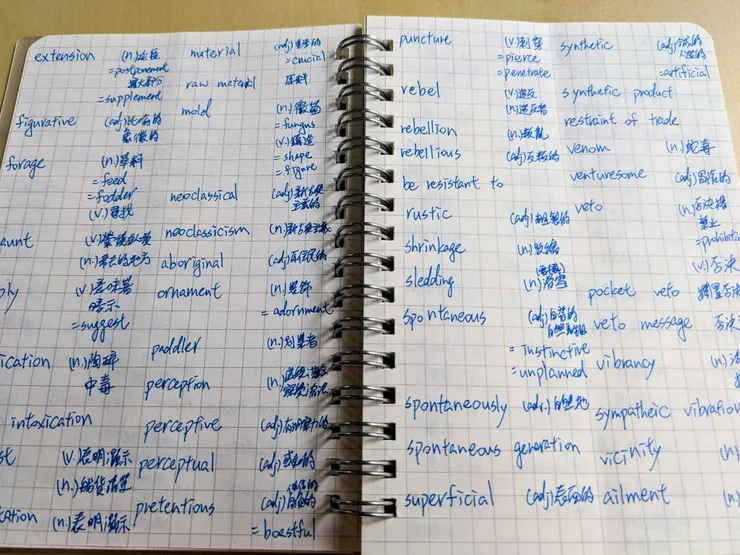 extension (n.)延長
=postponement
=supplement
figurative (adj)比喻的
象徵的
forage (n.)草料
=feed
=fodder
(v.)尋找
aunt (v.)
(n.)
ply (v.)意味著
暗示
=suggest
ication (n.)陶醉
中毒
intoxication
st (v.)表明顯示
(n.)
tation (n.)表明顯示
material (adj)重要的
=crucial
raw material 原料
mold (n.)黴菌
=fungus
(v.)鑄造
=shape
=figure
neoclassical (adj)新古典
主義的
neoclassicism (n.)新古典主義
aboriginal (adj)原住民的
ornament (n.)裝飾
=adornment
paddler (n.)划槳者
perception (n.)
perceptive (adj)有洞察力的
perceptual (adj)感知的
pretentious (adj)自負的
=boastful
puncture (v.)刺穿
=pierce
=penetrate
rebel (v.)造反
(n.)造反者
rebellion (n.)叛亂
rebellious (adj)反叛的
be resistant to
rustic (adj)
shrinkage (n.)收縮
sledding (n.)滑雪
spontaneous (adj)自發的
=instinctive
=unplanned
spontaneously (adv.)自然地
spontaneous generation
superficial (adj)表面的
synthetic (adj)合成的
人造的
=artificial
synthetic product
restraint of trade
venom (n.)蛇毒
venturesome (adj)冒險的
veto (n.)否決權
禁止
=prohibiti
(v.)否決
pocket veto 擱置否決
veto message 否決
vibrancy (n.)
sympatheic vibration
vicinity (n.)
ailment (n.)